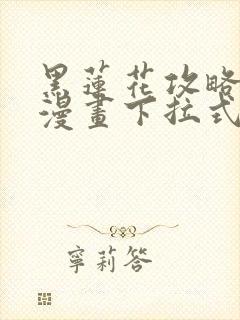 黑蓮花攻略
漫畫下拉式
寧莉答